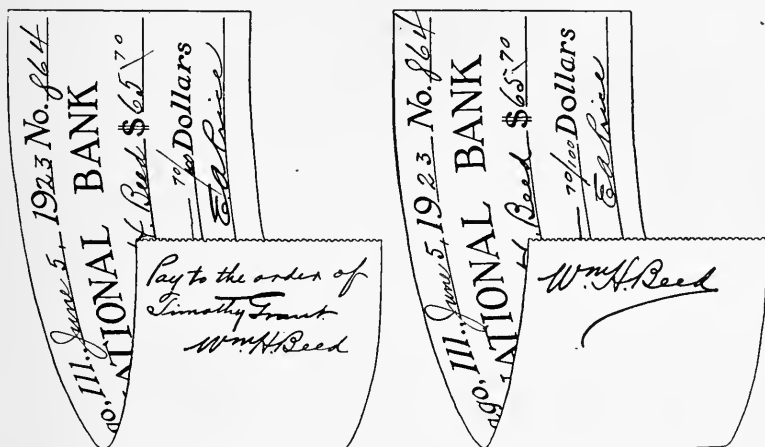 go, Ill. June 5, 1923 No. 864
ATIONAL BANK
Beed $65 70
70/100 Dollars
E A Price
Pay to the order of
Timothy Grant
Wm H. Beed
ago, Ill., June 5, 1923 No. 864
ATIONAL BANK
H. Beed $65 70
70/100 Dollars
E A Price
Wm H. Beed